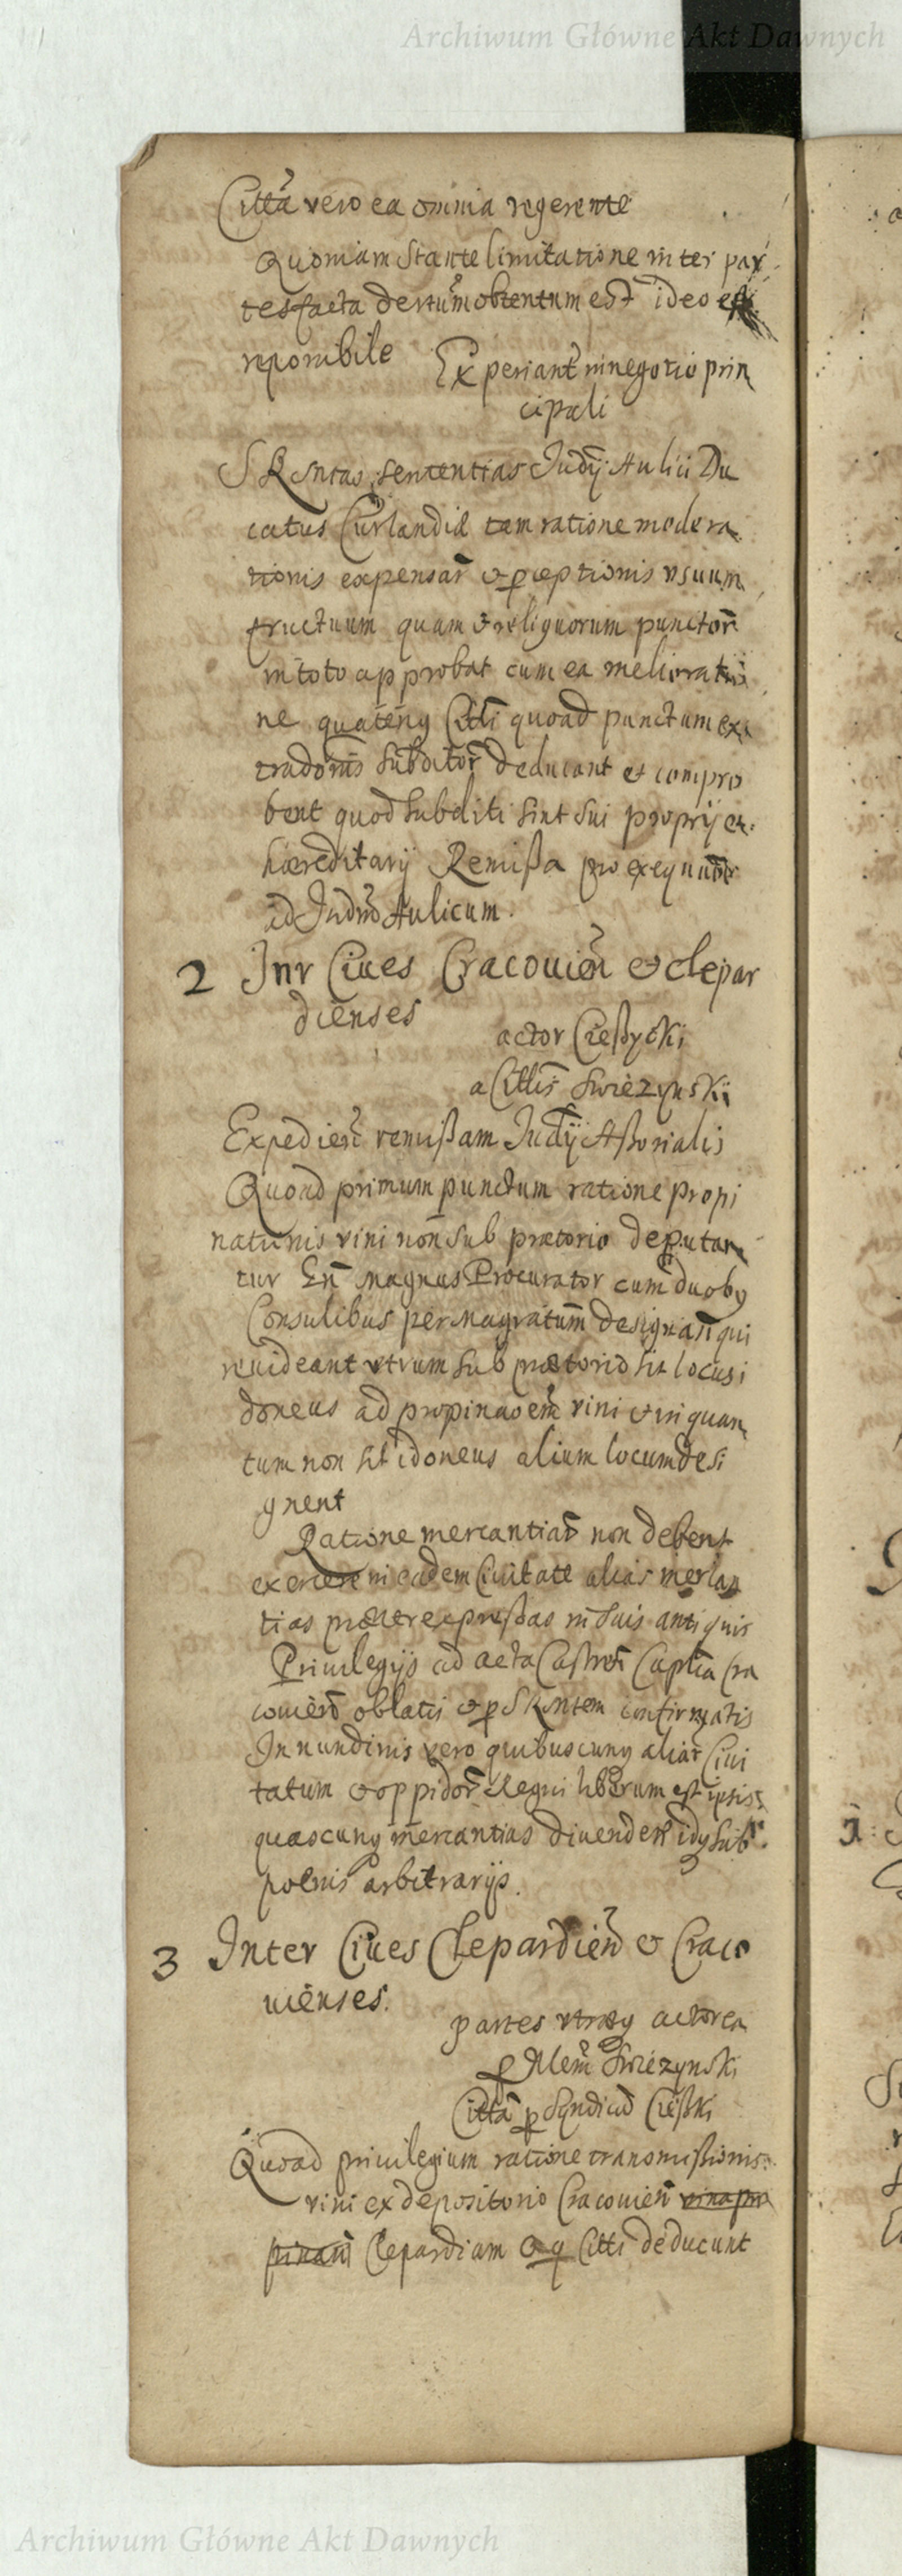 Archiwum Główne Akt Dawnych
Citta vero ea omnia regerente
Quoniam stante limitatione inter par
tes facta obtentum est ideo est
reponibile Experiant in negotio prin
cipali
S R sententias Judij Aulici Du
catus Curlandiæ tam ratione modera
tionis expensar et pceptionis vsuum
fructuum quam et reliquorum punctor
in toto approbat cum ea meliorati
ne quatenq Citti quoad punctum ex
tradonis subditor deducant et compro
bent quod subditi sint sui proprij et
hæreditarij Remißa pro
ad Judm Aulicum.
2 Intr Ciues Cracouien et Clepar
dienses
actor Cießycki
a Cittis Swiezynskij
Expedien remißam Judij Aßorialis
Quoad primum punctum ratione propi
nationis vini non sub prætorio deputan
tur Magnus Procurator cum duobq
Consulibus per Magratum designan qui
reuideant vtrum sub prætorio sit locus i
doneus ad propinaoem vini et in quan
tum non sit idoneus alium locum desi
gnent
Ratione mercantiar non debent
exercere in eadem Ciuitate alias mercan
tias præter expreßas in suis antiquis
Priuilegijs ad acta Castren Captia Cra
couien oblatis et p S R confirmatis
In nundinis vero quibuscunq aliar Ciui
tatum et oppidor Regni liberum est ipsis
quascunq mercantias diuendere idq sub
poenis arbitrarijs.
3 Inter Ciues Clepardien et Craco
uienses.
partes vtræq actorea
p Mem Swiezynski
Citta p Syndicu Cießki
Quoad priuilegium ratione transmißionis
vini ex depositorio Cracouien vina pro
pinari Clepardiam et q Citti deducunt
Archiwum Główne Akt Dawnych